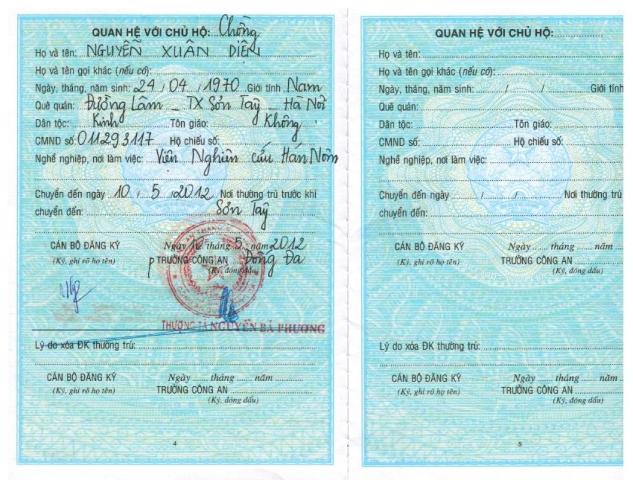 QUAN HỆ VỚI CHỦ HỘ: Chồng
Họ và tên: NGUYỄN XUÂN DIỆN
Họ và tên gọi khác (nếu có):
Ngày, tháng, năm sinh: 24/04/1970 Giới tính Nam
Quê quán: Đường Lâm - TX Sơn Tây - Hà Nội
Dân tộc: Kinh Tôn giáo: Không
CMND số: 011293117 Hộ chiếu số:
Nghề nghiệp, nơi làm việc: Viện Nghiên cứu Hán Nôm
Chuyển đến ngày 10/5/2012 Nơi thường trú trước khi
chuyển đến: Sơn Tây
CÁN BỘ ĐĂNG KÝ Ngày tháng 5 năm 2012
(Ký, ghi rõ họ tên) TRƯỞNG CÔNG AN Đống Đa
(Ký, đóng dấu)
THƯỢNG TÁ NGUYỄN BÁ PHƯƠNG
Lý do xóa ĐK thường trú:
CÁN BỘ ĐĂNG KÝ Ngày tháng năm
(Ký, ghi rõ họ tên) TRƯỞNG CÔNG AN
(Ký, đóng dấu)
4
QUAN HỆ VỚI CHỦ HỘ:
Họ và tên:
Họ và tên gọi khác (nếu có):
Ngày, tháng, năm sinh: / / Giới tính
Quê quán:
Dân tộc: Tôn giáo:
CMND số: Hộ chiếu số:
Nghề nghiệp, nơi làm việc:
Chuyển đến ngày / / Nơi thường trú
chuyển đến:
CÁN BỘ ĐĂNG KÝ Ngày tháng năm
(Ký, ghi rõ họ tên) TRƯỞNG CÔNG AN
(Ký, đóng dấu)
Lý do xóa ĐK thường trú:
CÁN BỘ ĐĂNG KÝ Ngày tháng năm
(Ký, ghi rõ họ tên) TRƯỞNG CÔNG AN
(Ký, đóng dấu)
5